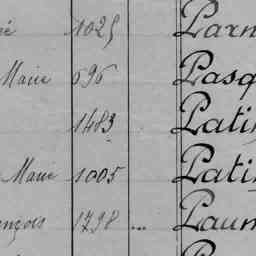 né 1025 Parn
Marie 696 Pasq
1483 Pati
Marie 1005 Pati
ançois 1798 ... Paum